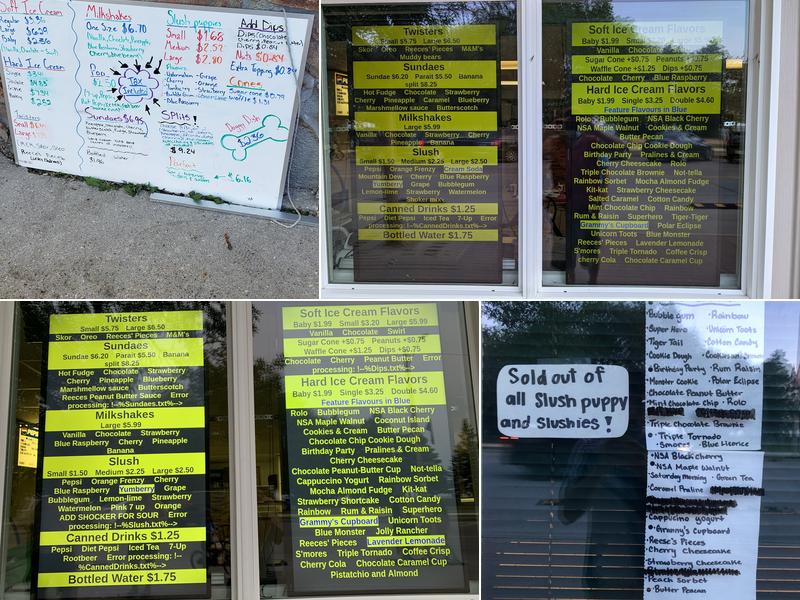 Soft Ice Cream
Hard Ice Cream
Milkshakes
One Size $6.70
Tax
Included
Sundaes $6.95
Bottled Water
Slush puppies
Small $1.68
Medium $2.52
Large $2.80
$9.24
Add Dips
Dips $0.84
Nuts $0.84
Cones
$6.16
Twisters
Small $5.75 Large $6.50
Skor Oreo Reeces' Pieces M&M's
Muddy bears
Sundaes
Sundae $6.20 Parait $5.50 Banana
split $8.25
Hot Fudge Chocolate Strawberry
Cherry Pineapple Caramel Blueberry
Marshmellow sauce Butterscotch
Milkshakes
Large $5.99
Vanilla Chocolate Strawberry Cherry
Pineapple Banana
Slush
Small $1.50 Medium $2.25 Large $2.50
Pepsi Orange Frenzy Cream Soda
Mountain Dew Cherry Blue Raspberry
Yumberry Grape Bubblegum
Lemon-lime Strawberry Watermelon
Shoker mixx
Canned Drinks $1.25
Pepsi Diet Pepsi Iced Tea 7-Up Error
processing: !--%CannedDrinks.txt%-->
Bottled Water $1.75
Soft Ice Cream Flavors
Baby $1.99 Small $3.20 Large $5.99
Vanilla Chocolate Swirl
Sugar Cone +$0.75 Peanuts +$0.75
Waffle Cone +$1.25 Dips +$0.75
Chocolate Cherry Blue Raspberry
Hard Ice Cream Flavors
Baby $1.99 Single $3.25 Double $4.60
Feature Flavours in Blue
Rolo Bubblegum NSA Black Cherry
NSA Maple Walnut Cookies & Cream
Butter Pecan
Chocolate Chip Cookie Dough
Birthday Party Pralines & Cream
Cherry Cheesecake Rolo
Triple Chocolate Brownie Not-tella
Rainbow Sorbet Mocha Almond Fudge
Kit-kat Strawberry Cheesecake
Salted Caramel Cotton Candy
Mint Chocolate Chip Rainbow
Rum & Raisin Superhero Tiger-Tiger
Grammy's Cupboard
Unicorn Toots Blue Monster
Reeses' Pieces Lavender Lemonade
S'mores Triple Tornado Coffee Crisp
cherry Cola Chocolate Caramel Cup
Twisters
Small $5.75 Large $6.50
Skor Oreo Reeces' Pieces M&M's
Sundaes
Sundae $6.20 Parait $5.50 Banana
split $8.25
Hot Fudge Chocolate Strawberry
Cherry Pineapple Blueberry
Marshmellow sauce Butterscotch
Reeses Peanut Butter Sauce Error
processing: !--%Sundaes.txt%-->
Milkshakes
Large $5.99
Vanilla Chocolate Strawberry
Blue Raspberry Cherry Pineapple
Banana
Slush
Small $1.50 Medium $2.25 Large $2.50
Pepsi Orange Frenzy Cherry
Blue Raspberry Yumberry Grape
Bubblegum Lemon-lime Strawberry
Watermelon Pink 7 up Orange
ADD SHOCKER FOR SOUR Error
processing: !--%Slush.txt%-->
Canned Drinks $1.25
Pepsi Diet Pepsi Iced Tea 7-Up
Rootbeer Error processing: !--
%CannedDrinks.txt%-->
Bottled Water $1.75
Soft Ice Cream Flavors
Baby $1.99 Small $3.20 Large $5.99
Vanilla Chocolate Swirl
Sugar Cone +$0.75 Peanuts +$0.75
Waffle Cone +$1.25 Dips +$0.75
Chocolate Cherry Peanut Butter Error
processing: !--%Dips.txt%-->
Hard Ice Cream Flavors
Baby $1.99 Single $3.25 Double $4.60
Feature Flavours in Blue
Rolo Bubblegum NSA Black Cherry
NSA Maple Walnut Coconut Island
Cookies & Cream Butter Pecan
Chocolate Chip Cookie Dough
Birthday Party Pralines & Cream
Cherry Cheesecake
Chocolate Peanut-Butter Cup Not-tella
Cappucino Yogurt Rainbow Sorbet
Mocha Almond Fudge Kit-kat
Strawberry Shortcake Cotton Candy
Rainbow Rum & Raisin Superhero
Grammy's Cupboard Unicorn Toots
Blue Monster Jolly Rancher
Reeses' Pieces Lavender Lemonade
S'mores Triple Tornado Coffee Crisp
Cherry Cola Chocolate Caramel Cup
Pistatchio and Almond
Sold out of
all Slush puppy
and slushies !
Bubble gum · Rainbow
Super Hero · Unicorn Toots
Tiger Tail · Cotton Candy
Cookie Dough
Birthday Party · Rum Raisin
Monster Cookie · Polar Eclipse
Chocolate Peanut Butter
Mint Chocolate Chip · Rolo
Triple Chocolate Brownie
Triple Tornado
Smores · Blue Licorice
NSA Black cherry
NSA Maple Walnut
Saturday morning · Green Tea
Caramel Praline
Cappucino yogurt
Grammy's Cupboard
Reese's Pieces
Cherry Cheesecake
Strawberry Cheesecake
Peach Sorbet
Butter Pecan